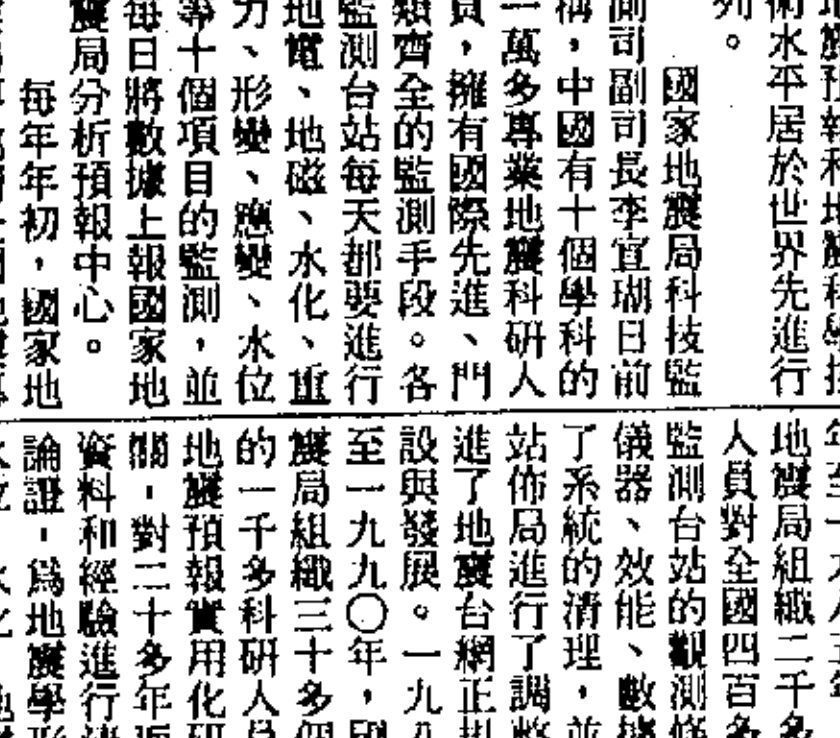 地震預報和地震科學技
術水平居於世界先進行
列。
國家地震局科技監
測司副司長李宣瑚日前
稱，中國有十個學科的
一萬多專業地震科研人
員，擁有國際先進、門
類齊全的監測手段。各
監測台站每天都要進行
地電、地磁、水化、重
力、形變、應變、水位
等十個項目的監測，並
每日將數據上報國家地
震局分析預報中心。
每年年初，國家地
地震局組織二千多
人員對全國四百多
監測台站的觀測條
儀器、效能、數據
了系統的清理，並
站佈局進行了調整
進了地震台網正規
設與發展。一九八
至一九九〇年，國
震局組織三十多個
的一千多科研人員
地震預報實用化研
關，對二十多年
資料和經驗進行
論證，爲地震學